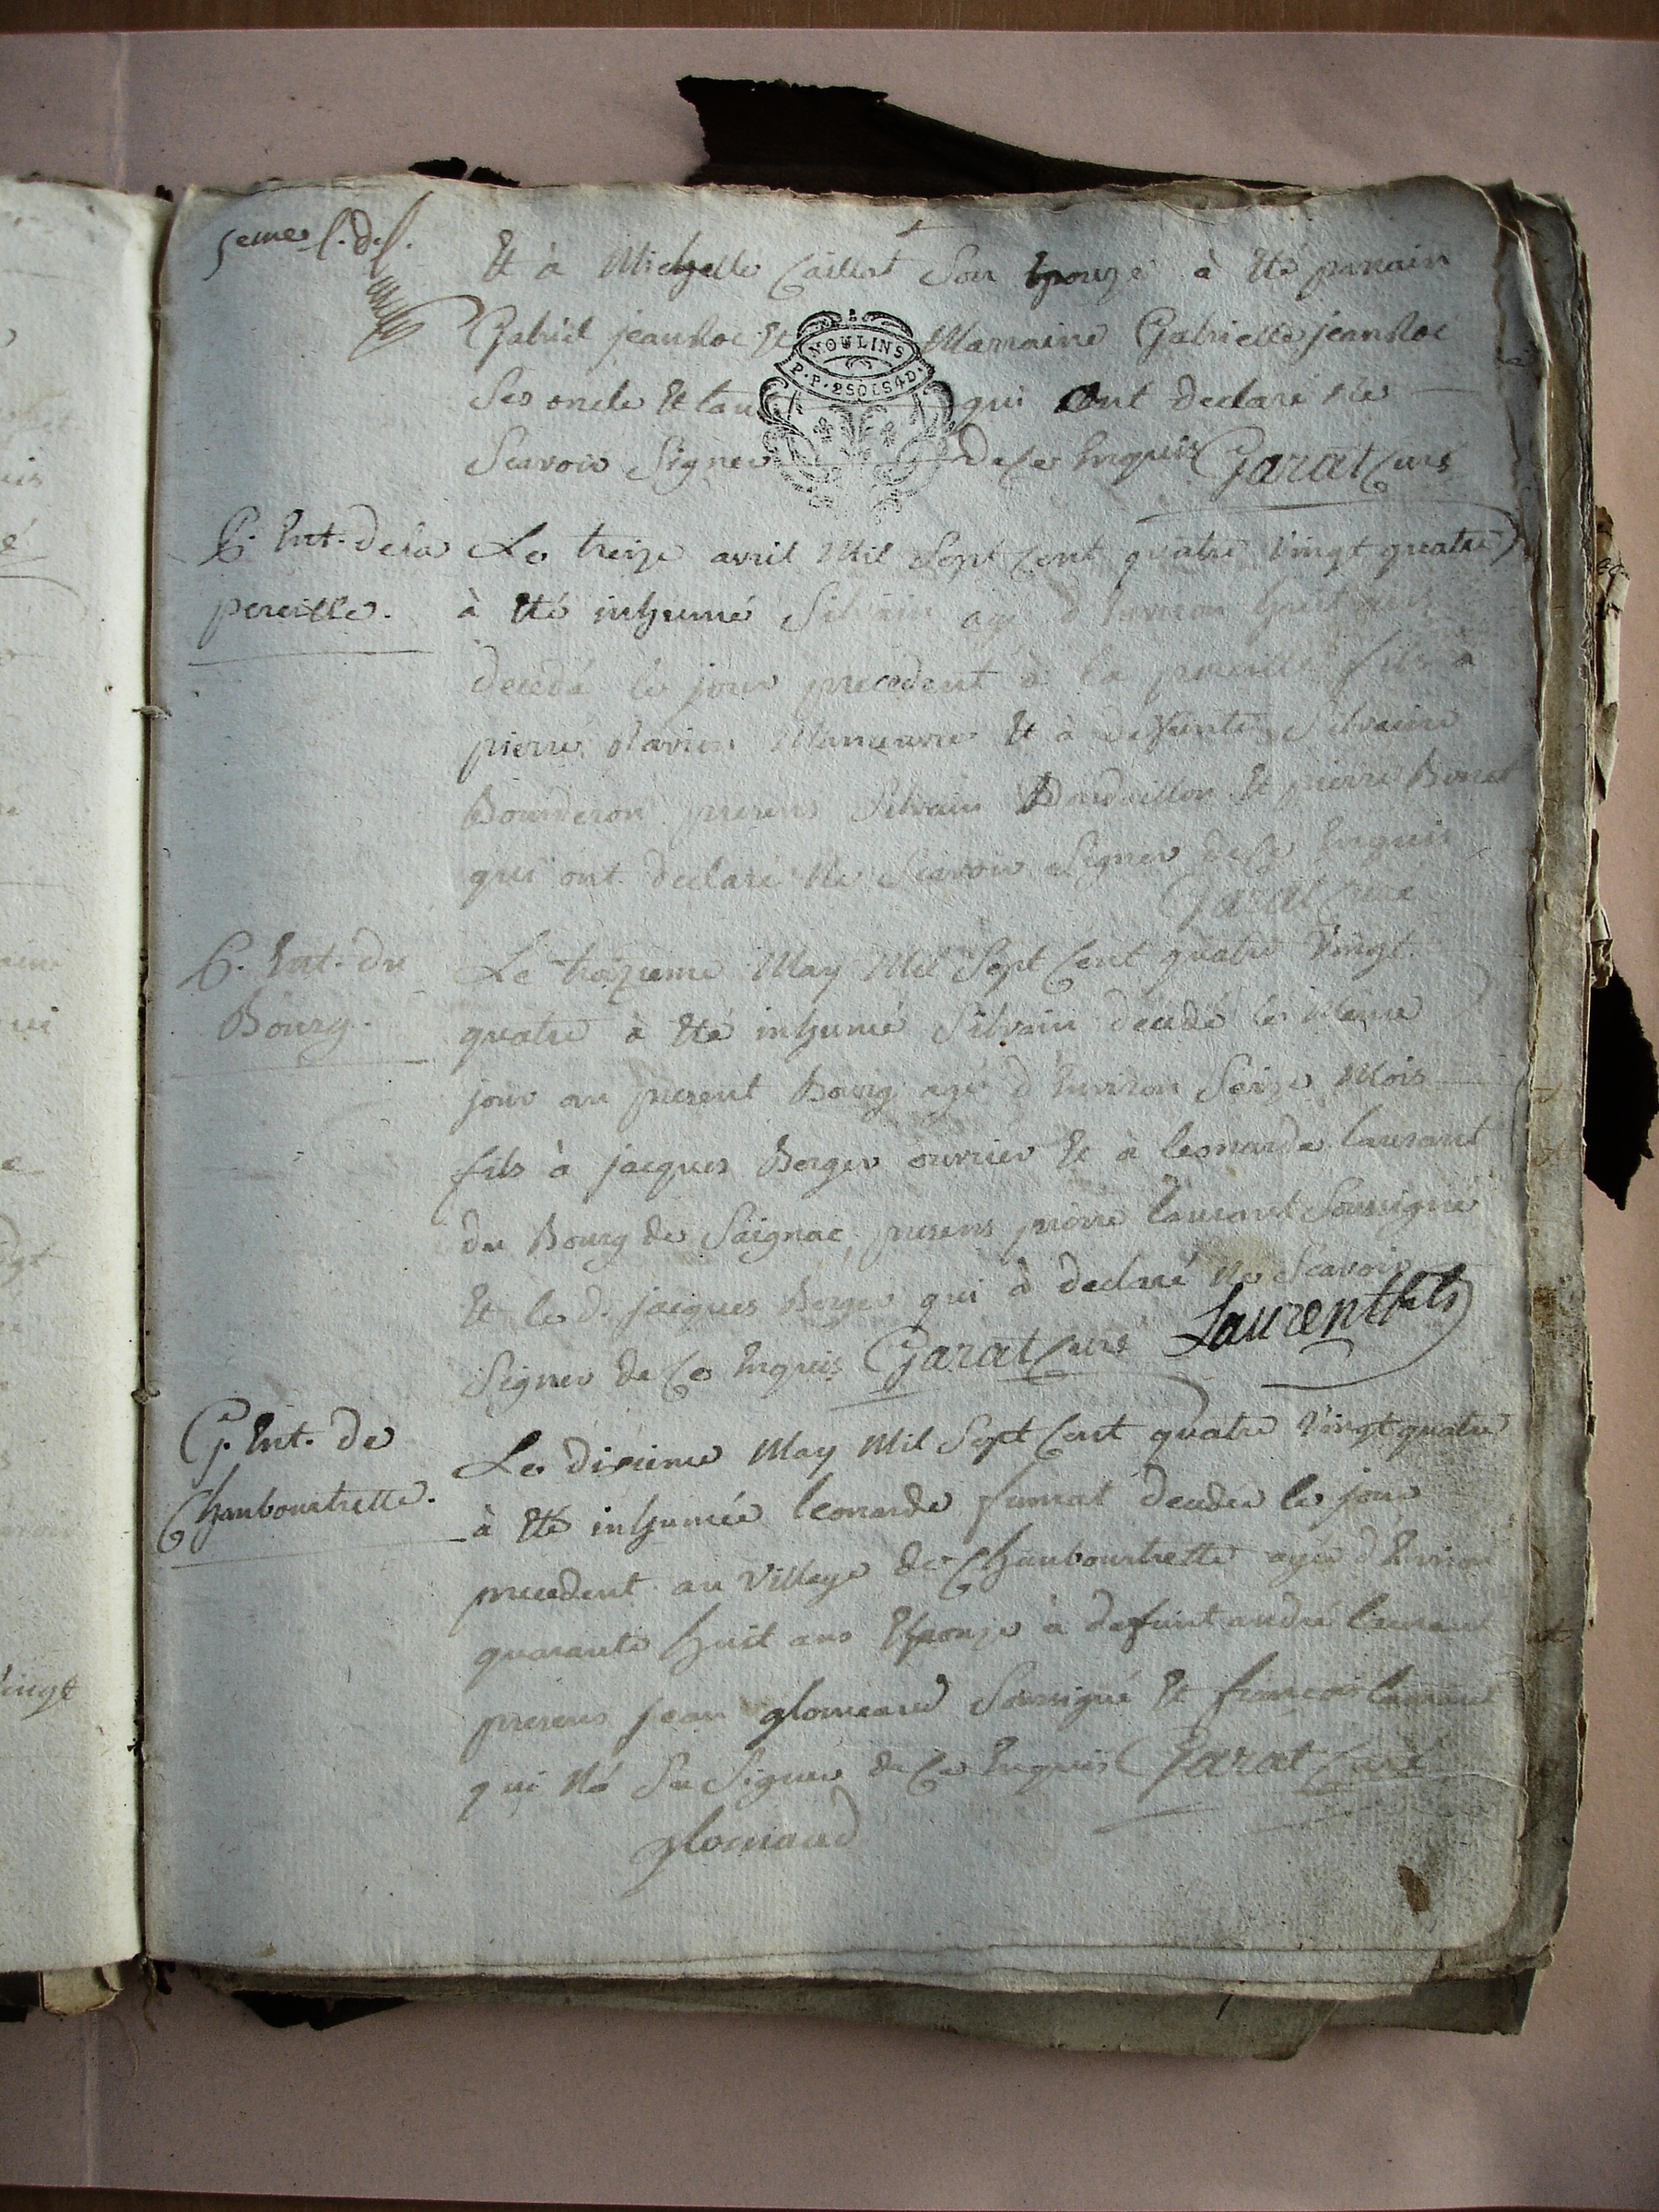 5eme f. d.
Et à Michelle Caillot Son Epouze à Eté parrain
Gabriel jeandot Et Marraine Gabrielle jeandot
Ses oncle Et tan qui ont declare ne
Scavoir Signer de Ce Enquis Garat Curé
MOULINS
P.P. 2 SOLS 4 D.
P. Ent. de la
pereille.
Le treize avril Mil Sept Cent quatre Vingt quatre
à Eté inhumé Silvain agé d'Environ huit ans
decedé le jour precedent à la pereille fils à
pierre Manœuvre Et à defunte Silvaine
Bourderon presens Silvain Et pierre Bonet
qui ont declaré Ne Scavoir Signer de Ce Enquis
Garat Curé
P. Ent. du
Bourg.
Le troizieme May Mil Sept Cent quatre Vingt
quatre à Eté inhumé Silvain decedé le Même
jour au present Bourg agé d'Environ Seize Mois
fils à jacques Berger ouvrier Et à leonarde laurant
du Bourg de Saignac, presens pierre laurant Soussigné
Et le d. jacques Berger qui à declaré Ne Scavoir
Signer de Ce Enquis Garat Curé Laurent
G. Ent. de
Chambourtrette.
Le dixieme May Mil Sept Cent quatre Vingt quatre
à Eté inhumée leonarde decedée le jour
precedent au Village de Chambourtrette agée d'Environ
quarante huit ans Epouze à defunt andré laurant
presens jean glomeaud Soussigné Et francois laurant
qui N'a Su Signer de Ce Enquis Garat Curé
glomaud